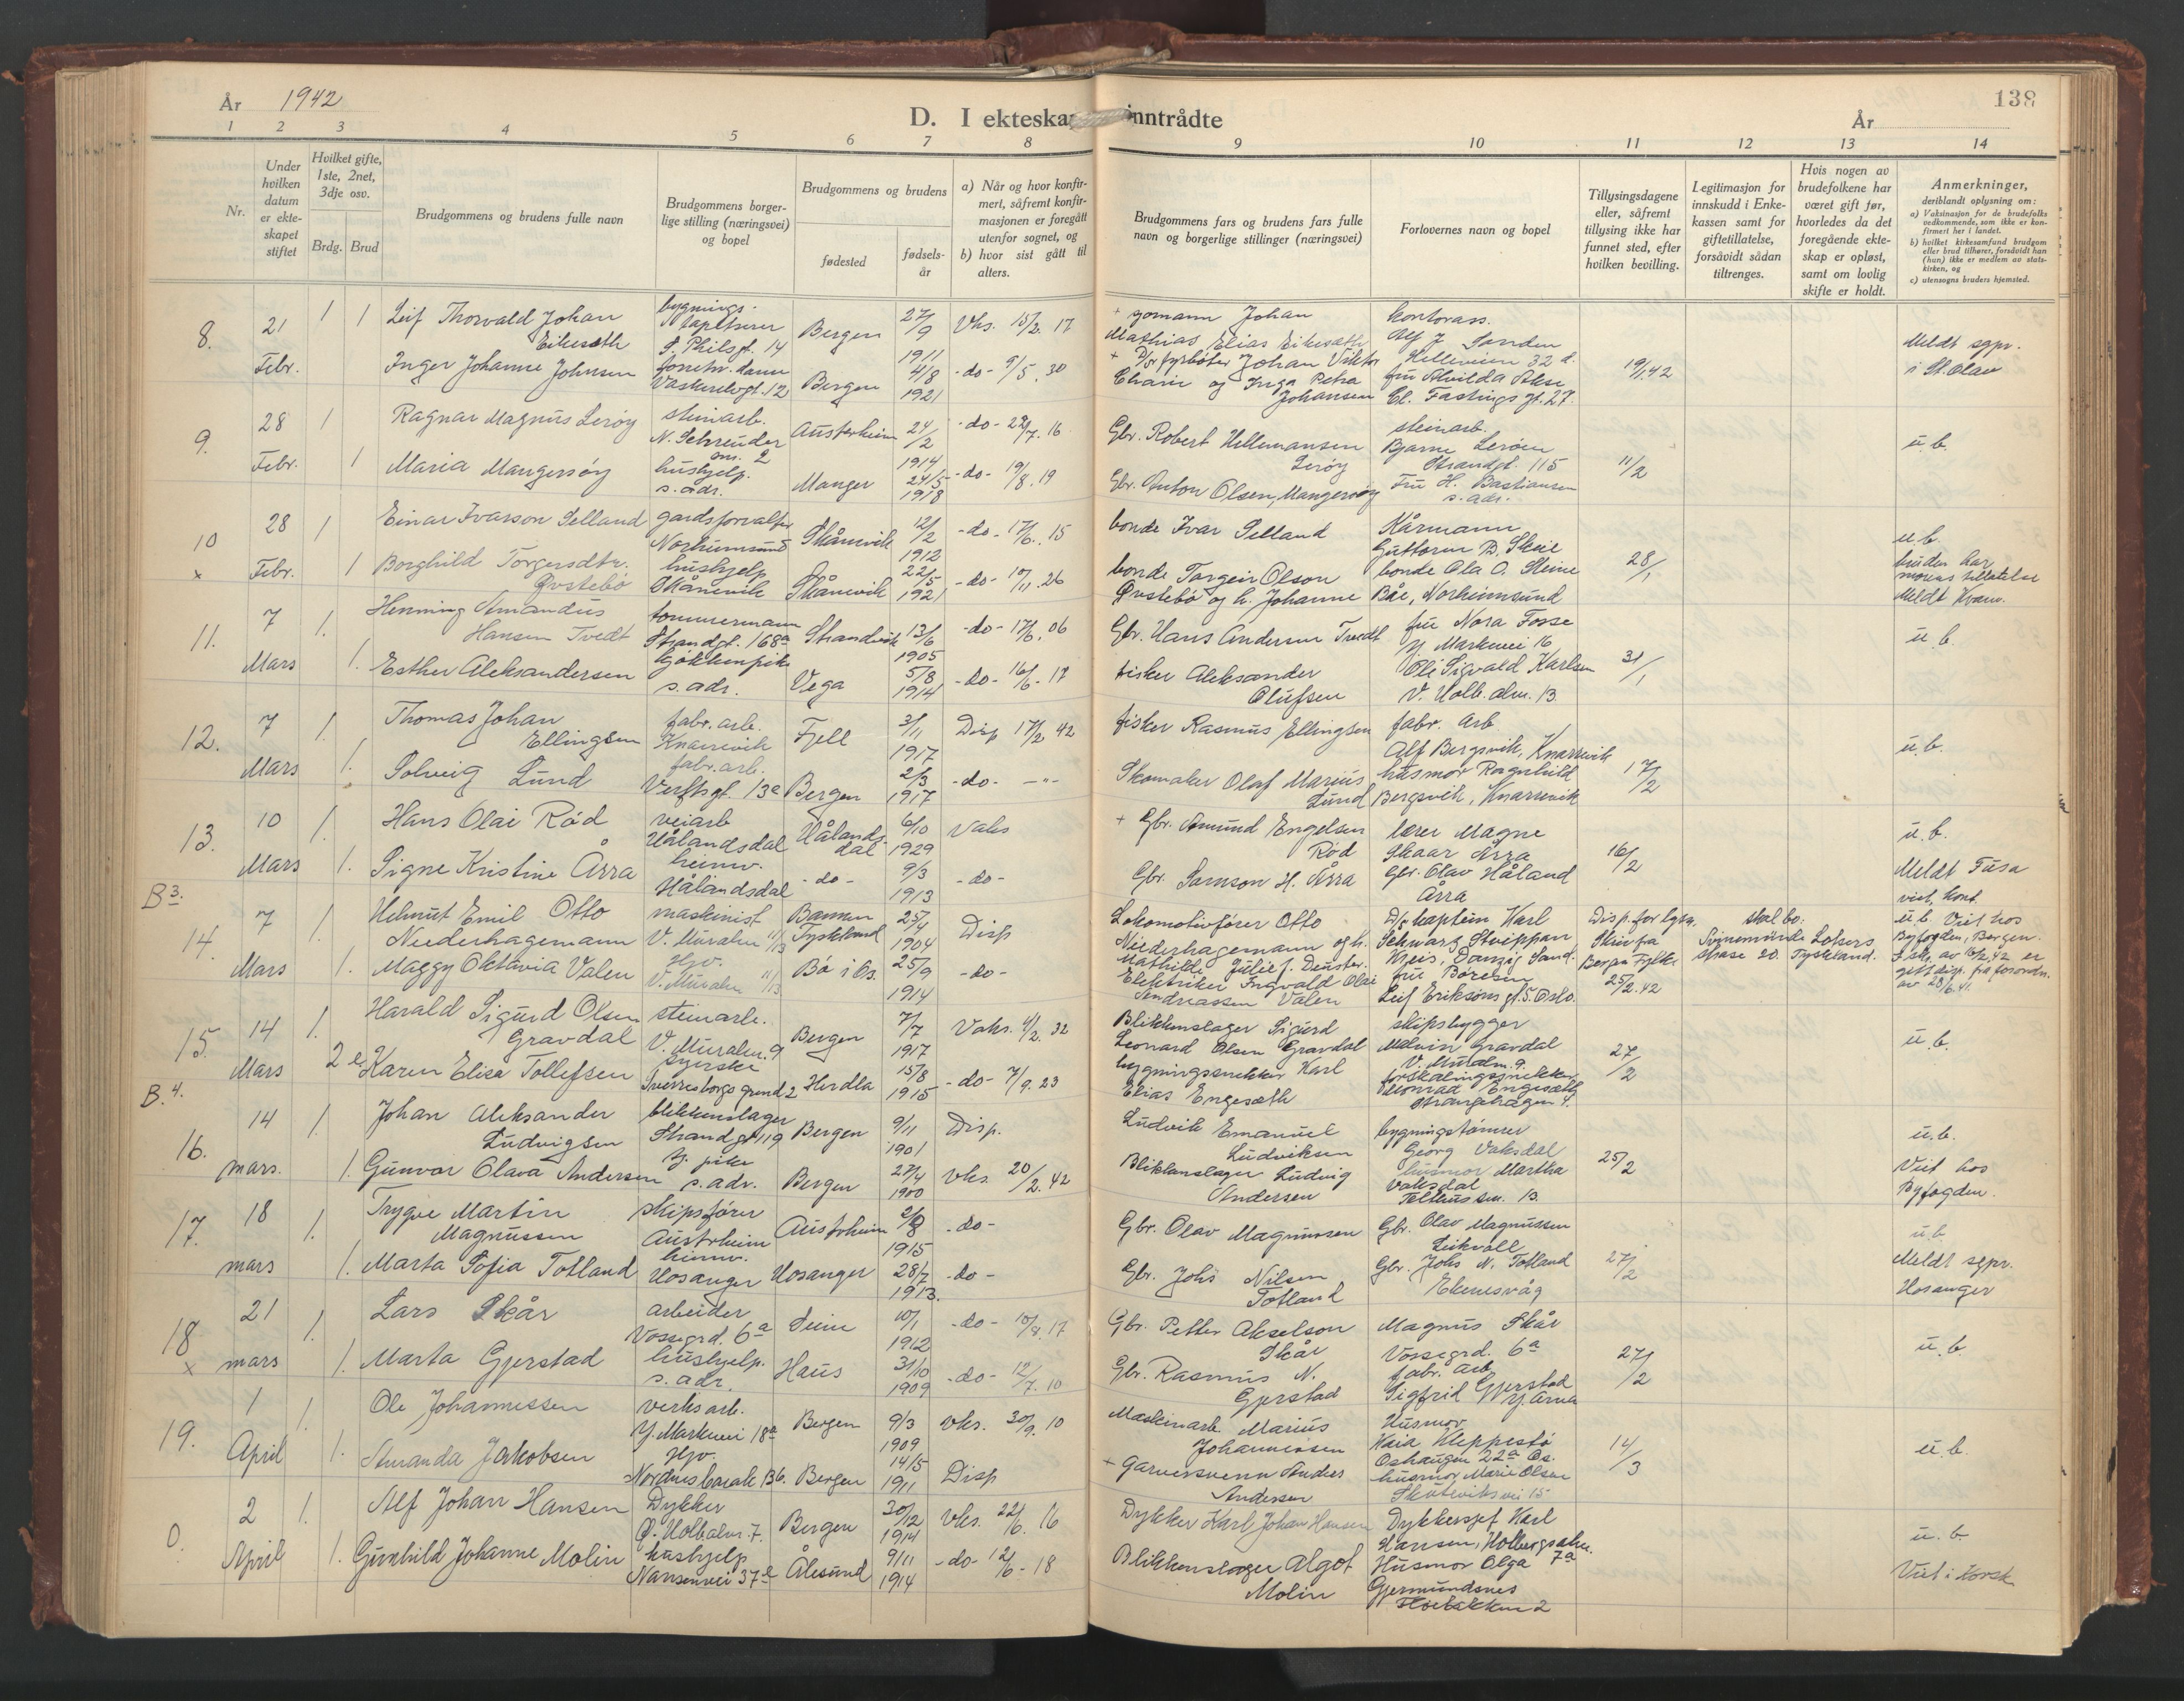 År 1942
D. I ekteska
inntrådte
År
138
1 2 3 4 5 6 7 8 9 10 11 12 13 14
Nr.
Under hvilken datum er ekte-skapet stiftet
Hvilket gifte, 1ste, 2net, 3dje osv.
Brdg. Brud
Brudgommens og brudens fulle navn
Brudgommens borger-lige stilling (næringsvei) og bopel
Brudgommens og brudens
fødested
fødsels-år
a) Når og hvor konfir-mert, såfremt konfir-masjonen er foregått utenfor sognet, og
b) hvor sist gått til alters.
Brudgommens fars og brudens fars fulle navn og borgerlige stillinger (næringsvei)
Forlovernes navn og bopel
Tillysingsdagene eller, såfremt tillysing ikke har funnet sted, efter hvilken bevilling.
Legitimasjon for innskudd i Enke-kassen samt for giftetillatelse, forsåvidt sådan tiltrenges.
Hvis nogen av brudefolkene har været gift før, hvorledes da det foregående ekte-skap er opløst, samt om lovlig skifte er holdt.
Anmerkninger, deriblandt oplysning om:
a) Vaksinasjon for de brudefolks vedkommende, som ikke er kon-firmert her i landet.
b) hvilket kirkesamfund brudgom eller brud tilhører, forsåvidt han (hun) ikke er medlem av stats-kirken, og
c) utensogns bruders hjemsted.
8. 21 Febr. 1 1
Leif Thorvald Johan Eikesæth
S. Philsgt. 14
Bergen 27/9 1911 Vks. 15/2. 17
Johan Mathias Elias Eikesæth
kontorass. Alf J. Sanden
Inger Johanne Johnsen
Bergen 4/8 1921 -do- 9/5. 30
D/s fyrbøter Johan Viktor
og Inga Petra Johansen
Cl. Fastings gt. 27.
19/1 42
Meldt sgpr. i St. Olav
9. 28 Febr. 1 1
Ragnar Magnus Lerøy
steinarb.
Austrheim 24/2 1914 -do- 16
Gbr. Robert Hellemansen Lerøy
steinarb. Bjarne Lerøen Strandgt. 115
Maria Mangersøy
hushjelp. s. adr.
Manger 24/5 1918 -do- 19/8. 19
Gbr. Anton Olsen, Mangersøy
Fru H. Bastiansen s. adr.
11/2
u.b.
10 x 28 Febr. 1 1
Einar Ivarson Selland
gardsforvalter Norheimsund
Skånevik 12/2 1912 -do- 17/6. 15
bonde Ivar Selland
Kårmann Guttorm B. Skeie
Borghild Torgersdtr. Øvstebö
hushjelp Skånevik
Skånevik 22/5 1921 -do- 17/11. 26
bonde Torgeir Olson Øvstebö og h. Johanne
bonde Ola O. Steine Båe, Norheimsund
28/1
u.b. bruden har morens tillatelse Meldt Kvam.
11. 7 Mars 1. 1.
Henning Amandus Hansen Tvedt
tømmermann Strandgt. 168a
Strandvik 13/6 1905 -do- 17/6. 06
Gbr. Hans Andersen Tvedt
fru Nora Fosse Y. Markevei 16
Esther Aleksandersen
kjökkenpike s. adr.
Vega 5/8 1914 -do- 16/6 - 17
fisker Aleksander Olufsen
Ole Sigvald Karlsen V. Holb. alm. 13.
31/1
u.b.
12. 7 Mars 1. 1.
Thomas Johan Ellingsen
fabr. arb. Knarrevik
Fjell 3/11 1917 Disp 17/2 42
fisker Rasmus Ellingsen
fabr. arb Alf Bergsvik, Knarrevik
Solveig Lund
fabr. arb. Verftsgt. 13a
Bergen 2/3 1917 -do- -"-
Skomaker Olaf Marius Lund
husmor Ragnhild Bergsvik, Knarrevik
17/2
u.b.
13. 10 Mars 1. 1.
Hans Olai Rød
veiarb Hålandsdal
Hålandsdal 6/10 1929 Vaks
+ Gbr. Amund Engelsen Rød
lærer Magne Skaar Årra
Signe Kristine Årra
heimv. Hålandsdal
-do- 9/3 1913 -do-
Gbr. Samson H. Årra
gbr. Olav Håland Årra
16/2
u.b. Meldt Fusa
B3. 14. 7 Mars 1. 1.
Helmut Emil Otto Niederhagemann
maskinist V. Muralm 11/13
Tyskland 25/4 1904 Disp
Lokomotivfører Otto Niederhagemann og h. Mathilde Julie f. Deuster.
D/s kaptein Karl Schwarz
Maggy Oktavia Valen
Hjv. V. Muralm 11/13
Bø i Os. 25/9 1914 -do-
Elektriker Ingvald Olai Andreassen Valen
fru Leif Eriksöns gt. 5. Oslo.
Disp. for lysn. Skriv fra Bergen Fylke 25/2. 42
skal bo: Swinemünde Lotsens strase 20. Tyskland.
viet, kont. u.b. Viet hos Byfogden, Bergen.
15. 14 Mars 1. 2
Harald Sigurd Olsen Gravdal
steinarb. V. Muralm. 9
Bergen 7/7 1917 Vaks. 4/2. 32
Blikkenslager Sigurd Leonard Olsen Gravdal
skipsbygger Malvin Gravdal V. Muralm. 9.
Karen Elisa Tollefsen
syerske Sverresborgs grend 2
Herdla 15/8 1915 -do- 7/9. 23
bygningssnekker Karl Elias Engesæth
forskalingssnekker Konrad Engesæth Strangehagen 4.
27/2
u.b.
B.4. 16. 14 mars. 1. 1.
Johan Aleksander Ludvigsen
blikkenslager Strandgt 119
Bergen 9/11 1901 Disp.
Ludvik Emanuel Ludviksen
bygningstömrer Georg Vaksdal
Gunvor Olava Andersen
tj. pike s. adr.
Bergen 27/4 1900 vks. 20/2. 42
Blikkenslager Ludvig Andersen
husmor Martha Vaksdal 13.
25/2
u.b. Viet hos Byfogden.
17. 18 mars 1. 1.
Trygve Martin Magnussen
skipsfører Austrheim
Austrheim 2/8 1915 -do-
Gbr. Olav Magnussen
Gbr. Olav Magnussen Leikvoll
Marta Sofia Totland
heimv. Hosanger
Hosanger 28/7 1913. -do-
Gbr. Johs Nilsen Totland
Gbr. Johs N. Totland Eknesvåg
27/2
u.b Meldt sgpr. Hosanger
18 x 21 mars 1. 1.
Lars Skår
arbeider Vossegrd. 6a
Seim 10/1 1912 -do- 17
Gbr. Petter Akselson Skår
Magnus Skår Vossegrd. 6a
Marta Gjerstad
hushjelp. s. adr.
Haus 31/10 1909 -do- 12/7. 10
Gbr. Rasmus N. Gjerstad
fabr. arb Sigfrid Gjerstad Y. Arna
27/2
u.b.
19. 1 April 1. 1.
Ole Johannessen
verksarb. Y. Markevei 18a
Bergen 9/3 1909 vks. 30/9. 10
Maskinarb Marius Johannessen
Husmor Kaia Kleppestø Oshaugen 22a Os.
Amanda Jakobsen
Hjv. Nordnesbakk 136.
Bergen 14/5 1911 Disp
+ Garversvenn Anders Andersen
husmor Marie Olsen Skuteviksvei 15
14/3
u.b.
0. 2 April 1. 1.
Alf Johan Hansen
Dykker Ø. Holbalm. 7.
Bergen 30/12 1914 vks. 22/6. 16
Dykker Karl Johan Hansen
Dykkersjef Karl Hansen, Holbergsalm. 7a
Gunhild Johanne Molin
hushjelp Nansenvei 37
Ålesund 9/11 1914 -do- 12/6 - 18
Blikkenslager Algot Molin
Husmor Olga Gjermundsnes
u.b Viet i